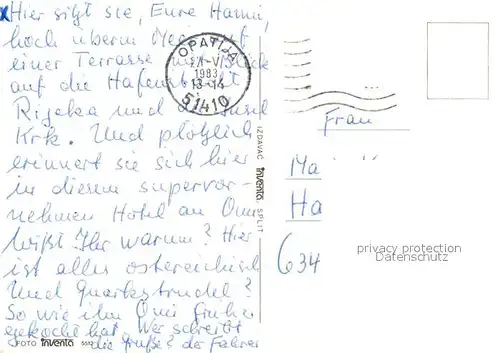 Hier sitzt sie, Eure Hanni,
hoch überm Meer auf
einer Terrasse mit Blick
auf die Hafenstadt
Rijeka und die Insel
Krk. Und plötzlich
erinnert sie sich hier
in diesem supervor-
nehmen Hotel an Omi
wißt Ihr warum? Hier
ist alles östereichisch
Und Quarkstrudel?
So wie ihn Omi früher
gekocht hat. Wer schreibt
die Grüße? der Fahrer
FOTO inventa
IZDAVAČ inventa SPLIT
OPATIJA
-VI
1983
13-14
51410
Frau
Ma
Ha
634
privacy protection
Datenschutz